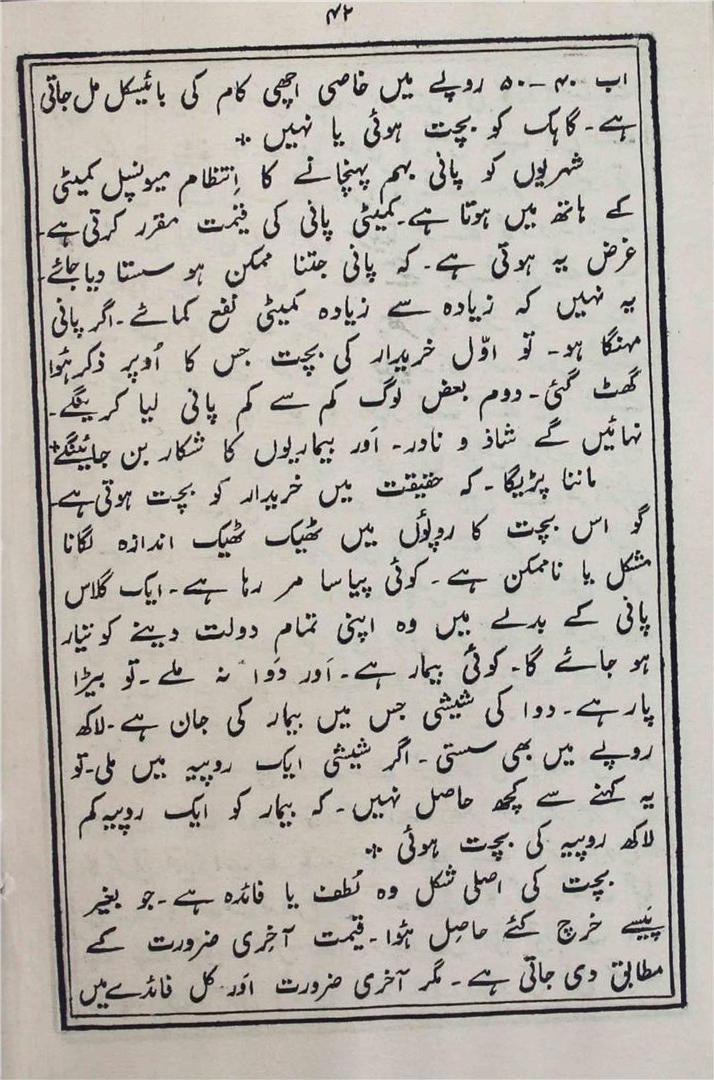 ۴۲
اب ۴۰ - ۵۰ روپے میں خاصی اچھی کام کی بائیسکل مل جاتی
ہے۔ گاہک کو بچت ہوئی یا نہیں +
شہریوں کو پانی بہم پہنچانے کا اِنتظام میونسپل کمیٹی
کے ہاتھ میں ہوتا ہے۔ کمیٹی پانی کی قیمت مقرر کرتی ہے۔
غرض یہ ہوتی ہے۔ کہ پانی جتنا ممکن ہو سستا دیا جائے۔
یہ نہیں کہ زیادہ سے زیادہ کمیٹی نفع کمائے۔ اگر پانی
مہنگا ہو۔ تو اوّل خریدار کی بچت جس کا اُوپر ذکر ہُوا
گھٹ گئی۔ دوم بعض لوگ کم سے کم پانی لیا کرینگے۔
نہائیں گے شاذ و نادر۔ اَور بیماریوں کا شکار بن جائینگے +
ماننا پڑیگا۔ کہ حقیقت میں خریدار کو بچت ہوتی ہے۔
گو اس بچت کا روپوں میں ٹھیک ٹھیک اندازہ لگانا
مشکل یا ناممکن ہے۔ کوئی پیاسا مر رہا ہے۔ ایک گلاس
پانی کے بدلے میں وہ اپنی تمام دولت دینے کو تیار
ہو جائے گا۔ کوئی بیمار ہے۔ اَور دَوا نہ ملے۔ تو بیڑا
پار ہے۔ دوا کی شیشی جس میں بیمار کی جان ہے۔ لاکھ
روپے میں بھی سستی۔ اگر شیشی ایک روپیہ میں ملی۔ تو
یہ کہنے سے کچھ حاصل نہیں۔ کہ بیمار کو ایک روپیہ کم
لاکھ روپیہ کی بچت ہوئی +
بچت کی اصلی شکل وہ لُطف یا فائدہ ہے۔ جو بغیر
پَیسے خرچ کئے حاصِل ہُوا۔ قیمت آخِری ضرورت کے
مطابق دی جاتی ہے۔ مگر آخری ضرورت اَور کل فائدے میں